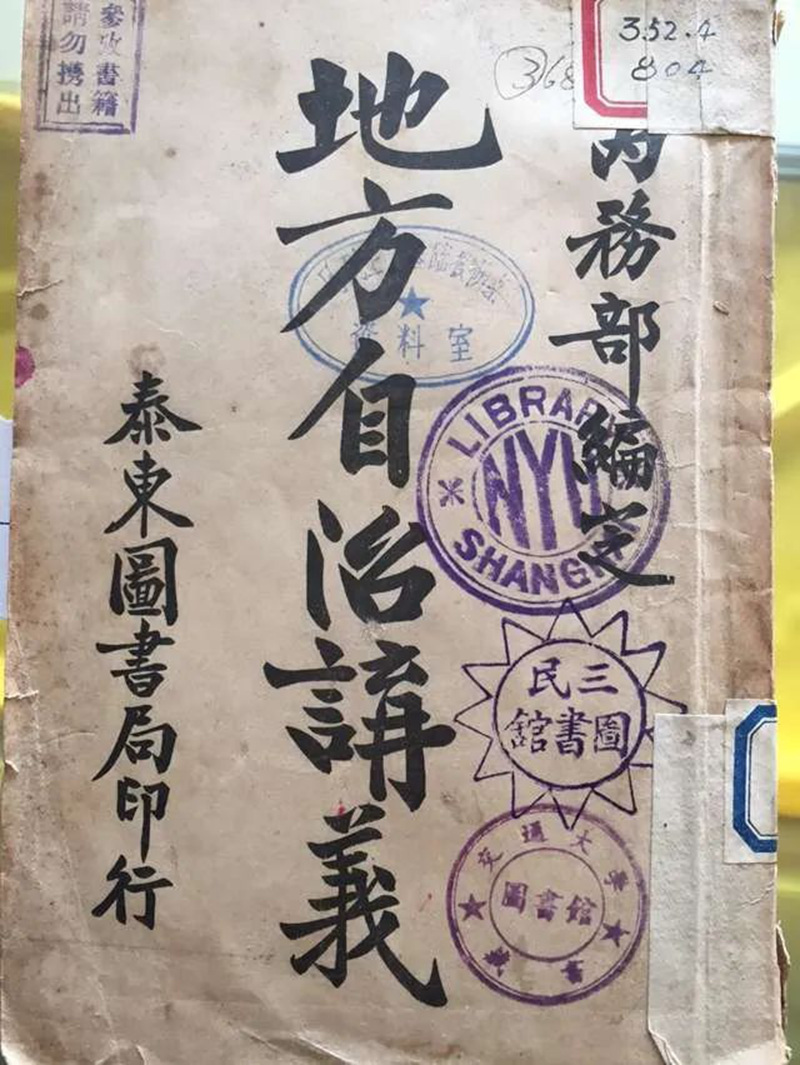 參攷書籍
請勿攜出
352.4
804
368
內務部編定
地方自治講義
泰東圖書局印行
資料室
LIBRARY
NYU
SHANGH
三民
圖書館
交通大學
圖書館